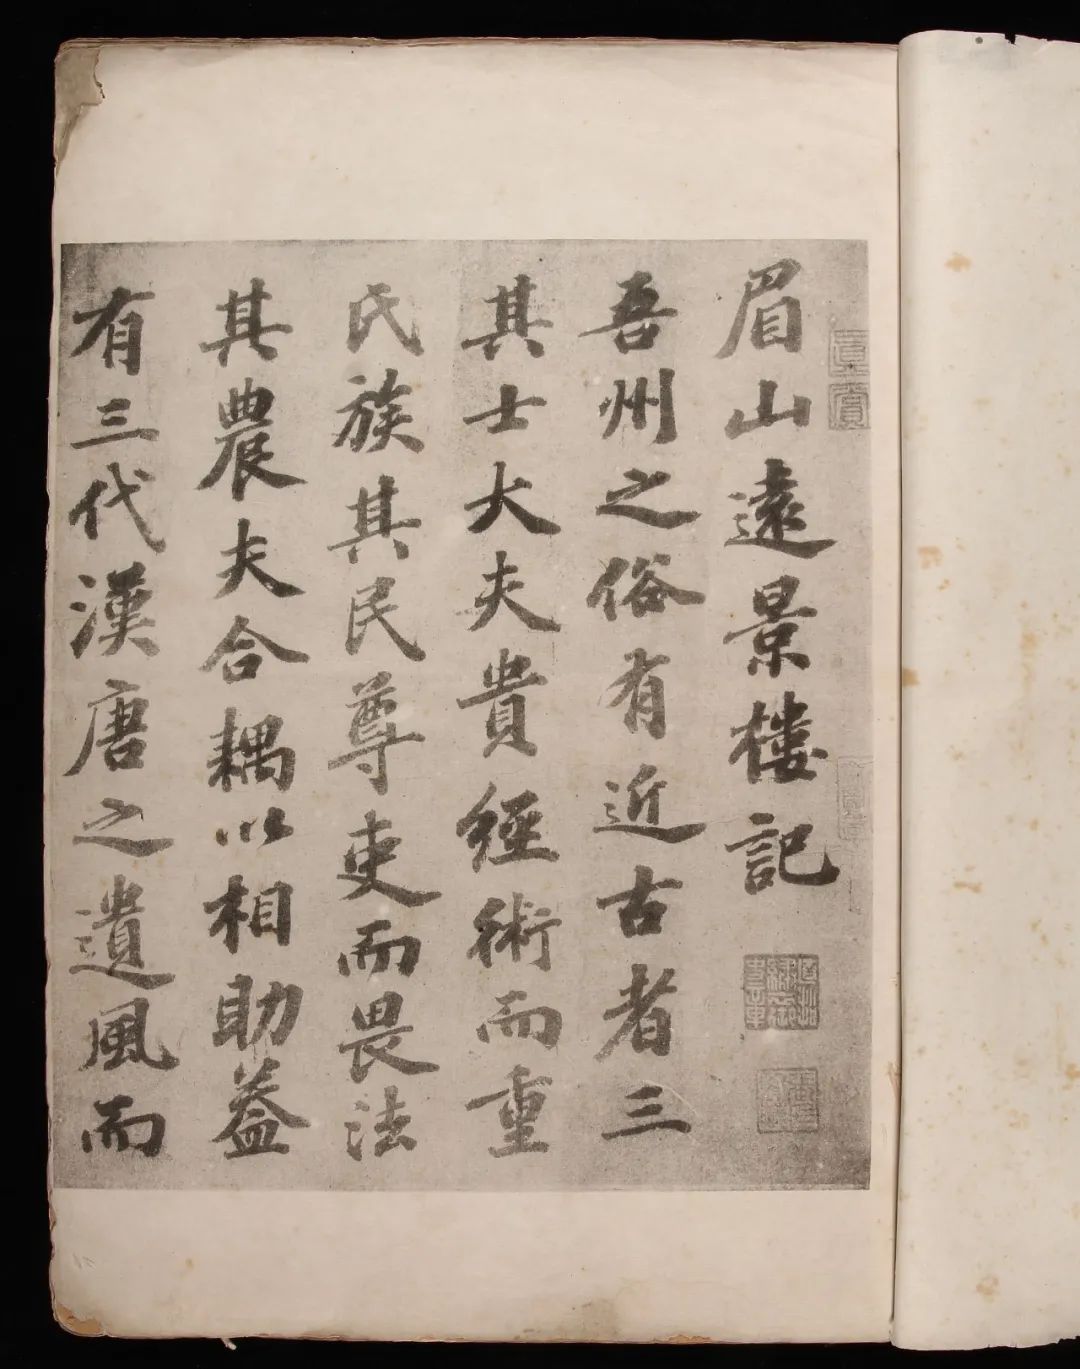 眉山遠景樓記
吾州之俗有近古者三
其士大夫貴經術而重
氏族其民尊吏而畏法
其農夫合耦以相助蓋
有三代漢唐之遺風而